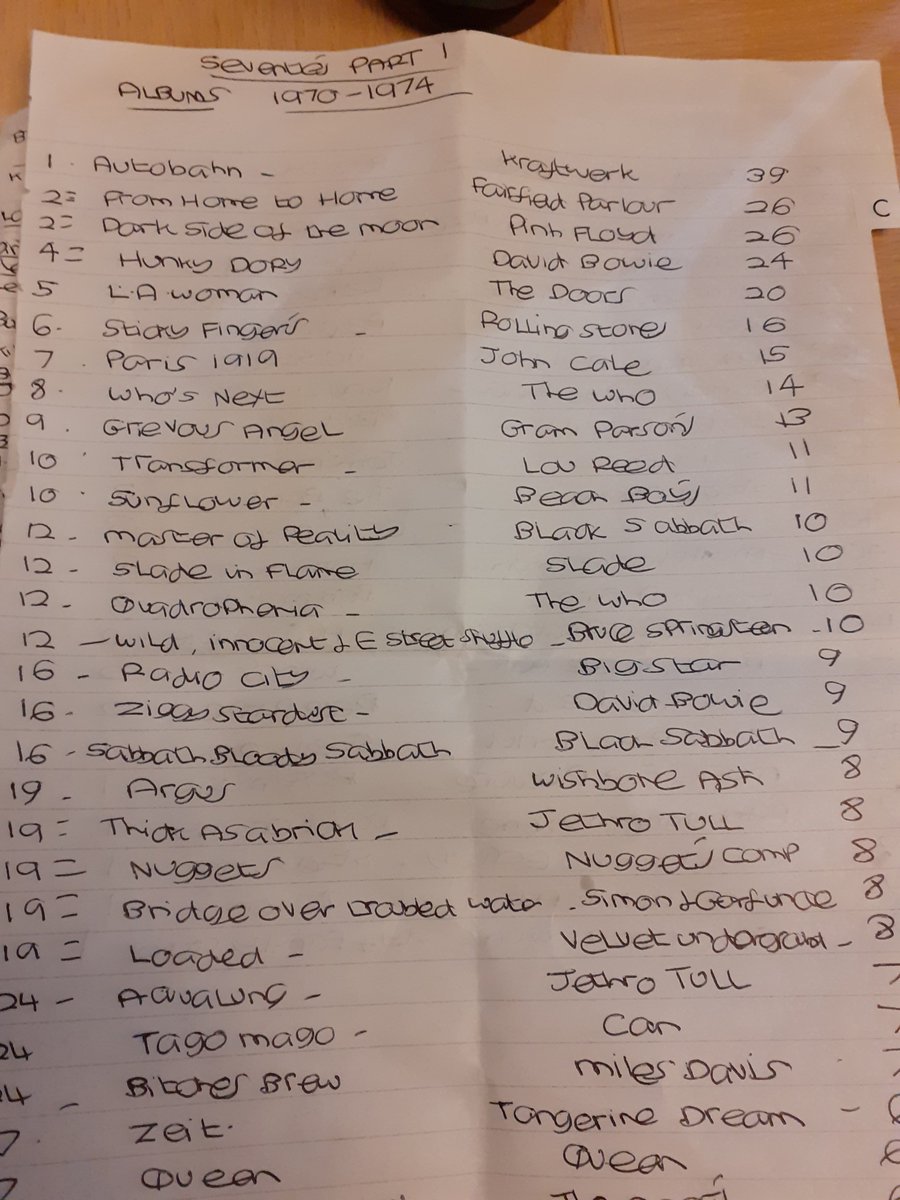 Seventies PART 1
ALBUMS 1970-1974
1. Autobahn - Kraftwerk 39
2= From Home to Home Fairfield Parlour 26
2= Dark side of the moon Pink Floyd 26
4= Hunky Dory David Bowie 24
5 L.A woman The Doors 20
6. Sticky Fingers - Rolling Stone 16
7 Paris 1919 John Cale 15
8. Who's Next The Who 14
9. Grievous Angel Gram Parsons 13
10 Transformer - Lou Reed 11
10 Sunflower - Beach Boys 11
12 - Master of Reality Black Sabbath 10
12 - Slade in Flame Slade 10
12 - Quadrophenia - The Who 10
12 - Wild, innocent & E Street Shuffle - Bruce Springsteen - 10
16 - Radio City - Big Star 9
16 - Ziggy Stardust - David Bowie 9
16 - Sabbath Bloody Sabbath Black Sabbath - 9
19 - Argus Wishbone Ash 8
19 = Thick As a brick - Jethro Tull 8
19 = Nuggets Nuggets comp 8
19 = Bridge over troubled water - Simon & Garfunkel 8
19 = Loaded - Velvet underground - 8
24 - Aqualung - Jethro Tull 7
24 Tago mago - Can
24 - Bitches Brew Miles Davis
7. Zeit. Tangerine Dream -
7 Queen Queen
C